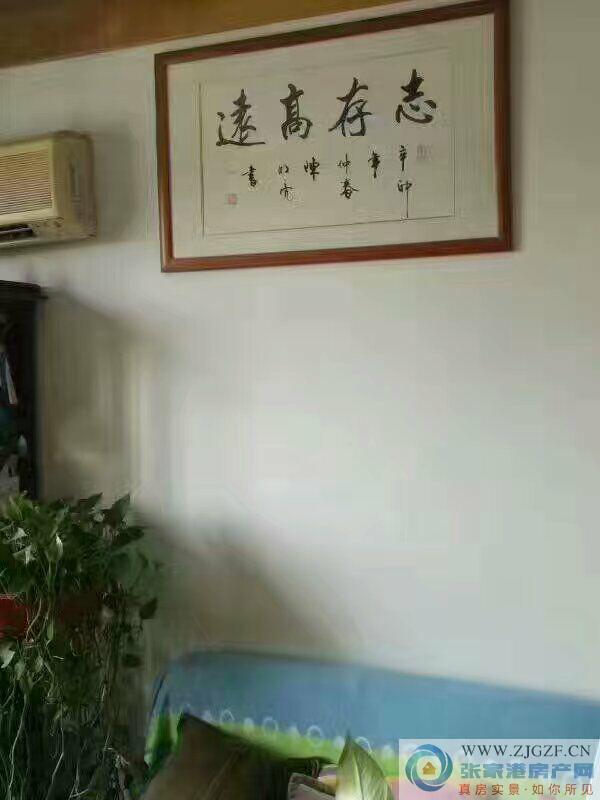 志存高遠
辛卯
年
仲春
陳
書
WWW.ZJGZF.CN
张家港房产网
真房实景·如你所见